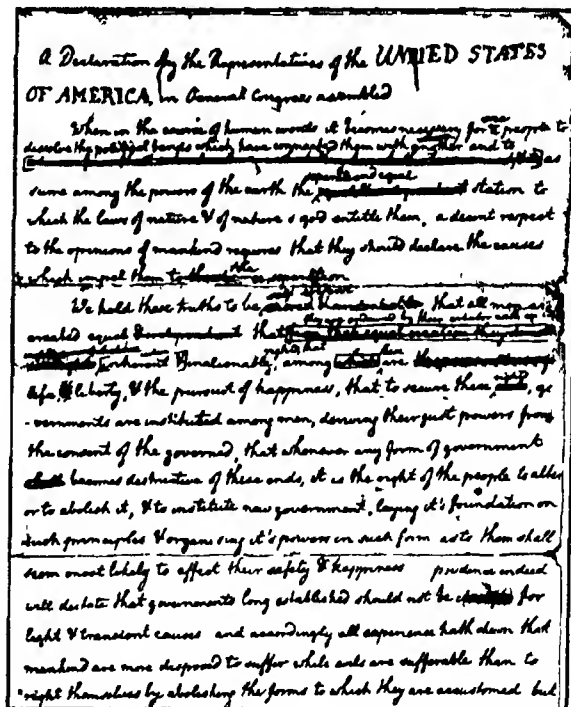 A Declaration by the Representatives of the UNITED STATES
OF AMERICA, in General Congress assembled
When in the course of human events it becomes necessary for one people to
dissolve the political bands which have connected them with another and to
as
sume among the powers of the earth the separate and equal station to
which the laws of nature & of nature's god entitle them, a decent respect
to the opinions of mankind requires that they should declare the causes
which impel them to the separation
We hold these truths to be self evident that all men are
created equal & independent that they are endowed by their creator with
inherent & inalienable rights that among these are
life, liberty, & the pursuit of happiness, that to secure these rights, go
-vernments are instituted among men, deriving their just powers from
the consent of the governed, that whenever any form of government
becomes destructive of these ends, it is the right of the people to alter
or to abolish it, & to institute new government, laying it's foundation on
such principles & organising it's powers in such form as to them shall
seem most likely to effect their safety & happiness prudence indeed
will dictate that governments long established should not be changed for
light & transient causes and accordingly all experience hath shewn that
mankind are more disposed to suffer while evils are sufferable than to
right themselves by abolishing the forms to which they are accustomed but